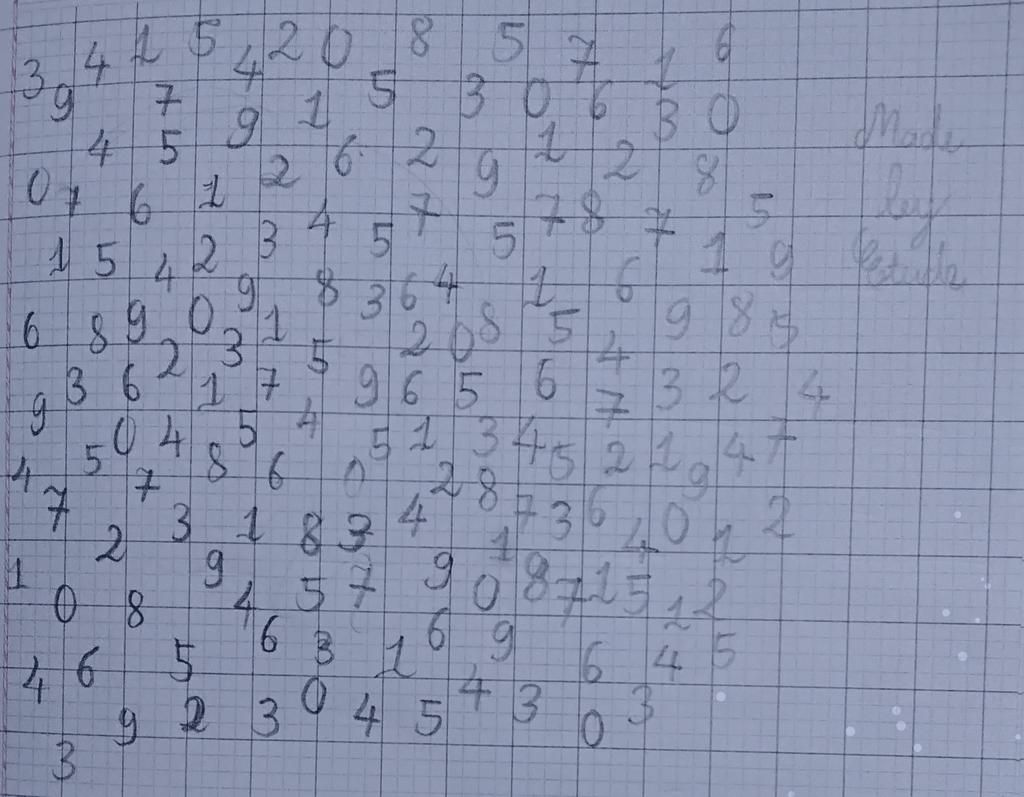 3 4 1 5 4 2 0 8 5 7 1 6
9 7 9 1 5 3 0 6 3 0
4 5 2 6 2 9 1 2 8 Made
0 7 6 1 3 4 5 7 5 7 8 7 5 by
1 5 4 2 9 8 3 6 4 1 6 1 9
6 8 9 0 1 5 2 0 8 5 4 9 8 5
9 3 6 2 1 3 7 9 6 5 6 7 3 2 4
5 0 4 5 4 5 1 3 4 5 2 1 9 4 7
4 7 7 8 6 0 2 8
2 3 1 8 3 4 1 7 3 6 4 0 1 2
1 0 8 9 4 5 7 9 0 8 7 1 5 1 2
4 6 5 6 3 1 6 9 6 4 5
9 2 3 0 4 5 4 3 0 3
3